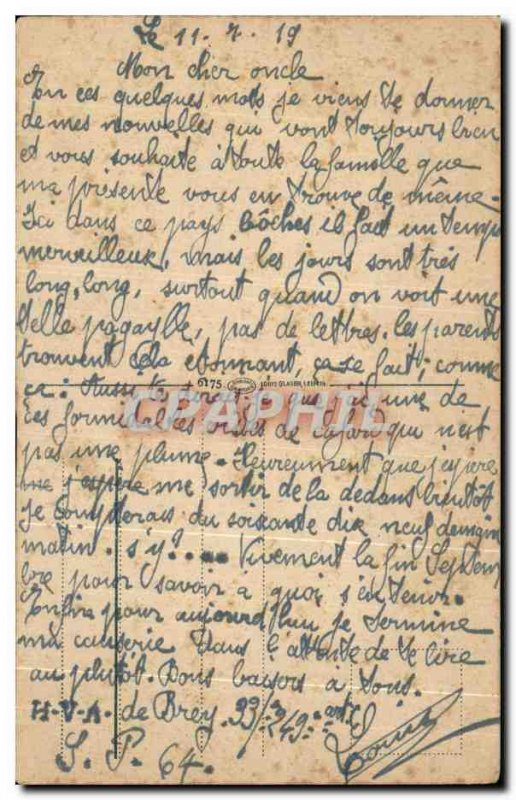 Le 11-7-19
Mon cher oncle
En ces quelques mots je viens te donner
de mes nouvelles qui vont toujours bien
et vous souhaite à toute la famille que
ma présente vous en trouve de même.
Ici dans ce pays bôches il fait un temps
merveilleux, mais les jours sont très
long, long, surtout quand on voit une
telle pagaylle, pas de lettres. les parents
trouvent cela étonnant, ça se fait, comme
ça: Aussi que j'ai une de
6175. LOUIS GLASER, LEIPZIG
CAPHIL
ces formidables de cafard qui n'est
pas une plume. Heureument que j'espère
me j'espère me sortir de la dedans bientôt
je compterais du soissante dix neuf demain
matin. s'y!.... Vivement la fin Septem
bre pour savoir a quoi s'en tenir.
Enfin pour aujourd'hui je termine
ma causerie dans l'attente de te lire
au plutôt. Bons baisers à tous.
H-V-A- de Brey. 33/ 249
S. P. 64.